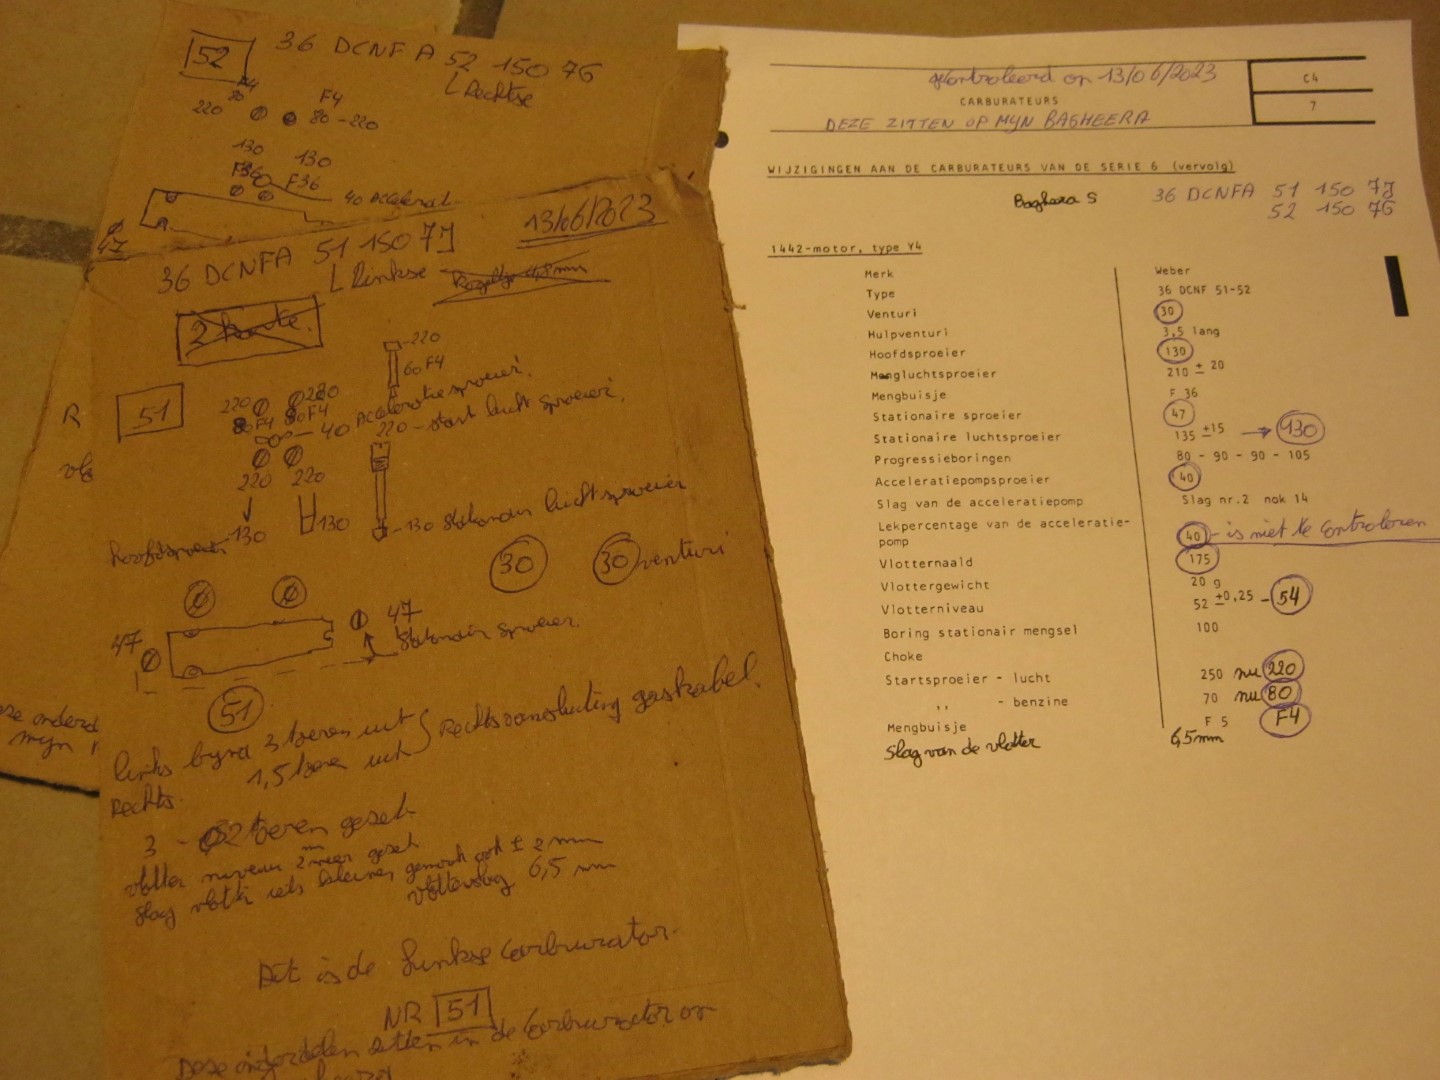 52
36 DCNF A 52 150 76
L Rechtse
F4
220
F4
80 - 220
130
130
F36
F36
40 Accelerat.
47
13/06/2023
36 DCNFA 51 150 77
L Linkse
2 korte.
220
60 F4
R
51
220
220
80 F4
80 F4
40 Acceleratie sproeier.
220 - start lucht sproeier.
220
220
130
130
130 Stationair luchtsproeier
hoofdsproeier
30
30 venturi
47
47
Stationair sproeier.
51
links bijna 3 toeren uit
1,5 toeren uit
Rechtsaansluiting gaskabel.
Rechts.
3 - 2 toeren gezet
vlotter niveau 2 mm meer gezet
slag vlotter iets kleiner gemaakt ook ± 2 mm
vlotterslag 6,5 mm
Dit is de linkse Carburator.
NR 51
Deze onderdelen zitten in de Carburator op
mijn
gecontroleerd op 13/06/2023
CARBURATEURS
DEZE ZITTEN OP MIJN BAGHEERA
C4
7
WIJZIGINGEN AAN DE CARBURATEURS VAN DE SERIE 6 (vervolg)
Baghera S
36 DCNFA 51 150 77
52 150 76
1442-motor, type Y4
Merk Weber
Type 36 DCNF 51-52
Venturi 30
Hulpventuri 3,5 lang
Hoofdsproeier 130
Mengluchtsproeier 210 ± 20
Mengbuisje F 36
Stationaire sproeier 47
Stationaire luchtsproeier 135 ±15 → 130
Progressieboringen 80 - 90 - 90 - 105
Acceleratiepompsproeier 40
Slag van de acceleratiepomp Slag nr.2 nok 14
Lekpercentage van de acceleratie-
pomp 40 - is niet te controleren
Vlotternaald 175
Vlottergewicht 20 g
Vlotterniveau 52 ±0,25 - 54
Boring stationair mengsel 100
Choke
Startsproeier - lucht 250 nu 220
,, - benzine 70 nu 80
Mengbuisje F 5 F4
Slag van de vlotter 6,5mm